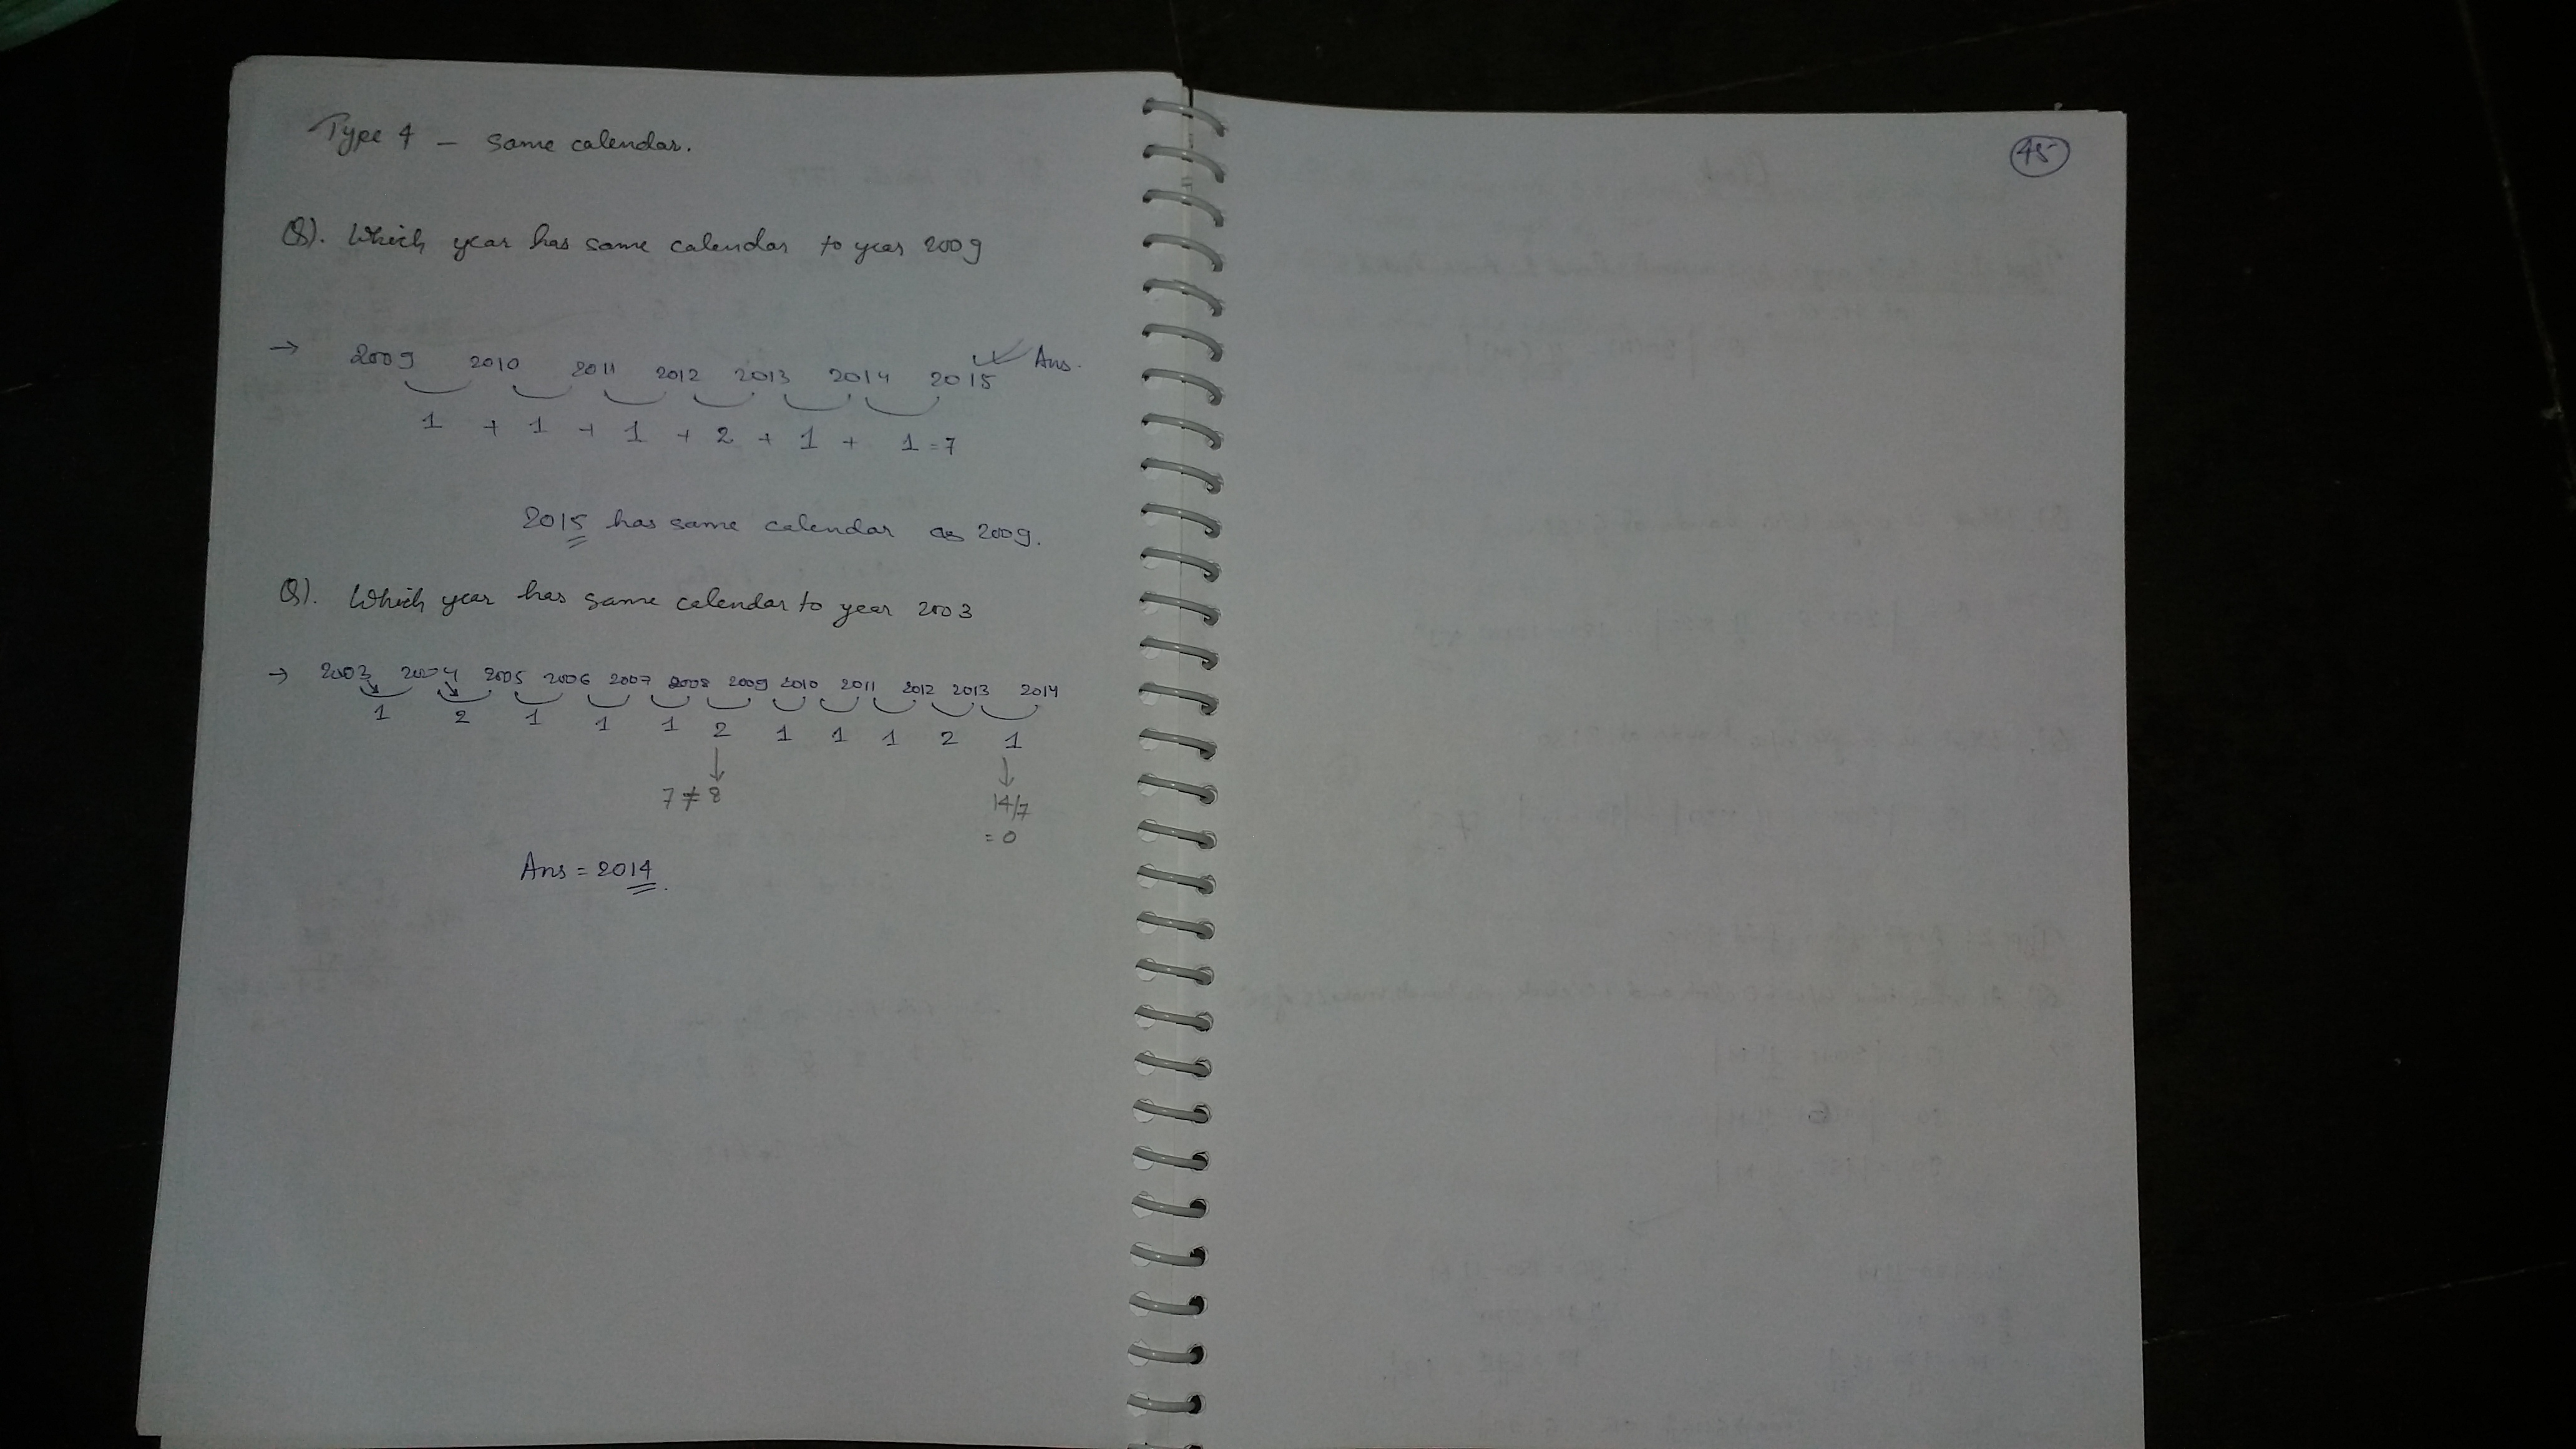 Type 4 - same calendar.
Q). Which year has same calendar to year 2009
→ 2009 2010 2011 2012 2013 2014 2015 Ans.
1 + 1 + 1 + 2 + 1 + 1 = 7
2015 has same calendar as 2009.
Q). Which year has same calendar to year 2003
→ 2003 2004 2005 2006 2007 2008 2009 2010 2011 2012 2013 2014
1 2 1 1 1 2 1 1 1 2 1
7 ≠ 8 14/7
= 0
Ans = 2014.
45